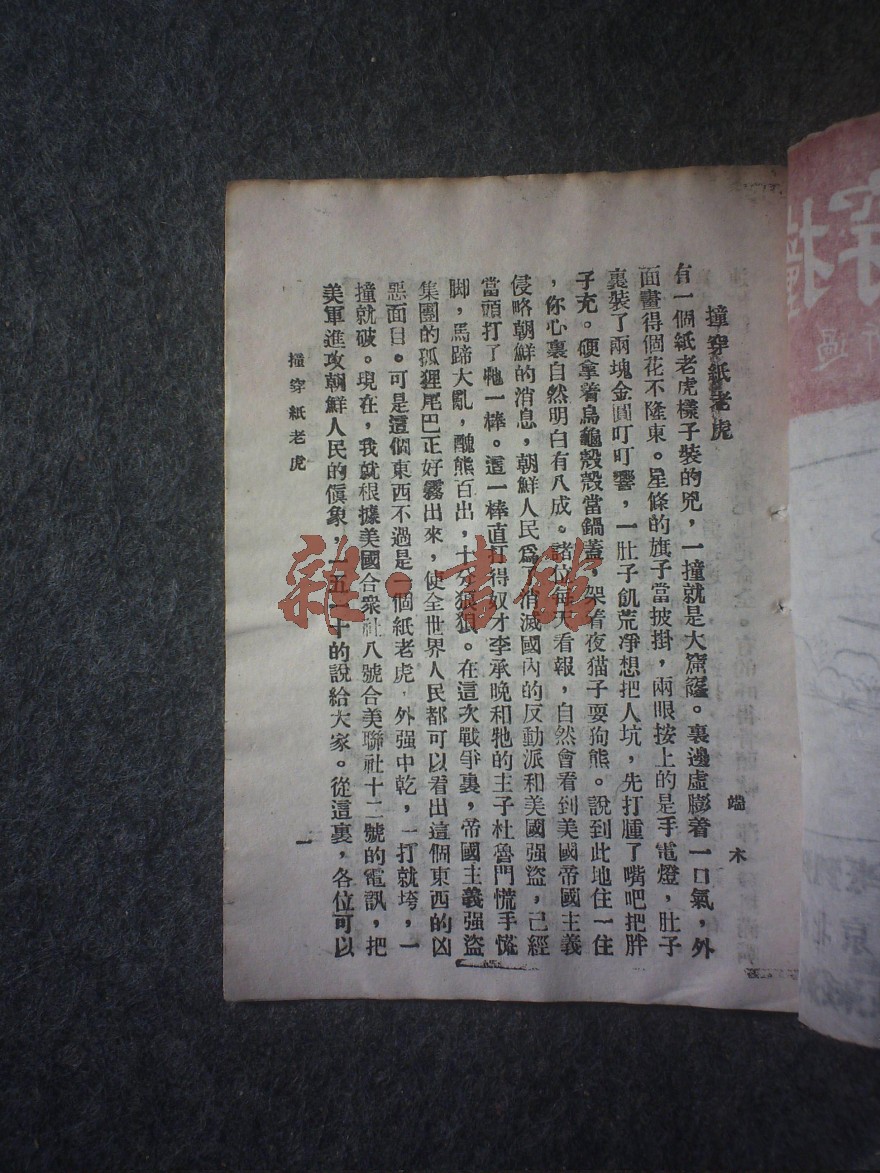 撞穿紙老虎
端木
有一個紙老虎樣子裝的兇，一撞就是大窟窿。裏邊虛膨着一口氣，外
面畫得個花不隆東。星條的旗子當披掛，兩眼按上的是手電燈，肚子
裏裝了兩塊金圓叮叮響，一肚子飢荒凈想把人坑，先打腫了嘴吧把胖
子充。硬拿着烏龜殼殼當鍋蓋，架着夜猫子耍狗熊。說到此地住一住
，你心裏自然明白有八成。諸位每天看報，自然會看到美國帝國主義
侵略朝鮮的消息，朝鮮人民爲了消滅國內的反動派和美國强盜，已經
當頭打了牠一棒。這一棒直打得奴才李承晚和牠的主子杜魯門慌手慌
脚，馬蹄大亂，醜態百出，十分狼狽。在這次戰爭裏，帝國主義强盜
集團的孤狸尾巴正好露出來，使全世界人民都可以看出這個東西的凶
惡面目。可是這個東西不過是一個紙老虎，外强中乾，一打就垮，一
撞就破。現在，我就根據美國合衆社八號合美聯社十二號的電訊，把
美軍進攻朝鮮人民的慎象，一五一十的說給大家。從這裏，各位可以
撞穿紙老虎
一
雜·書館